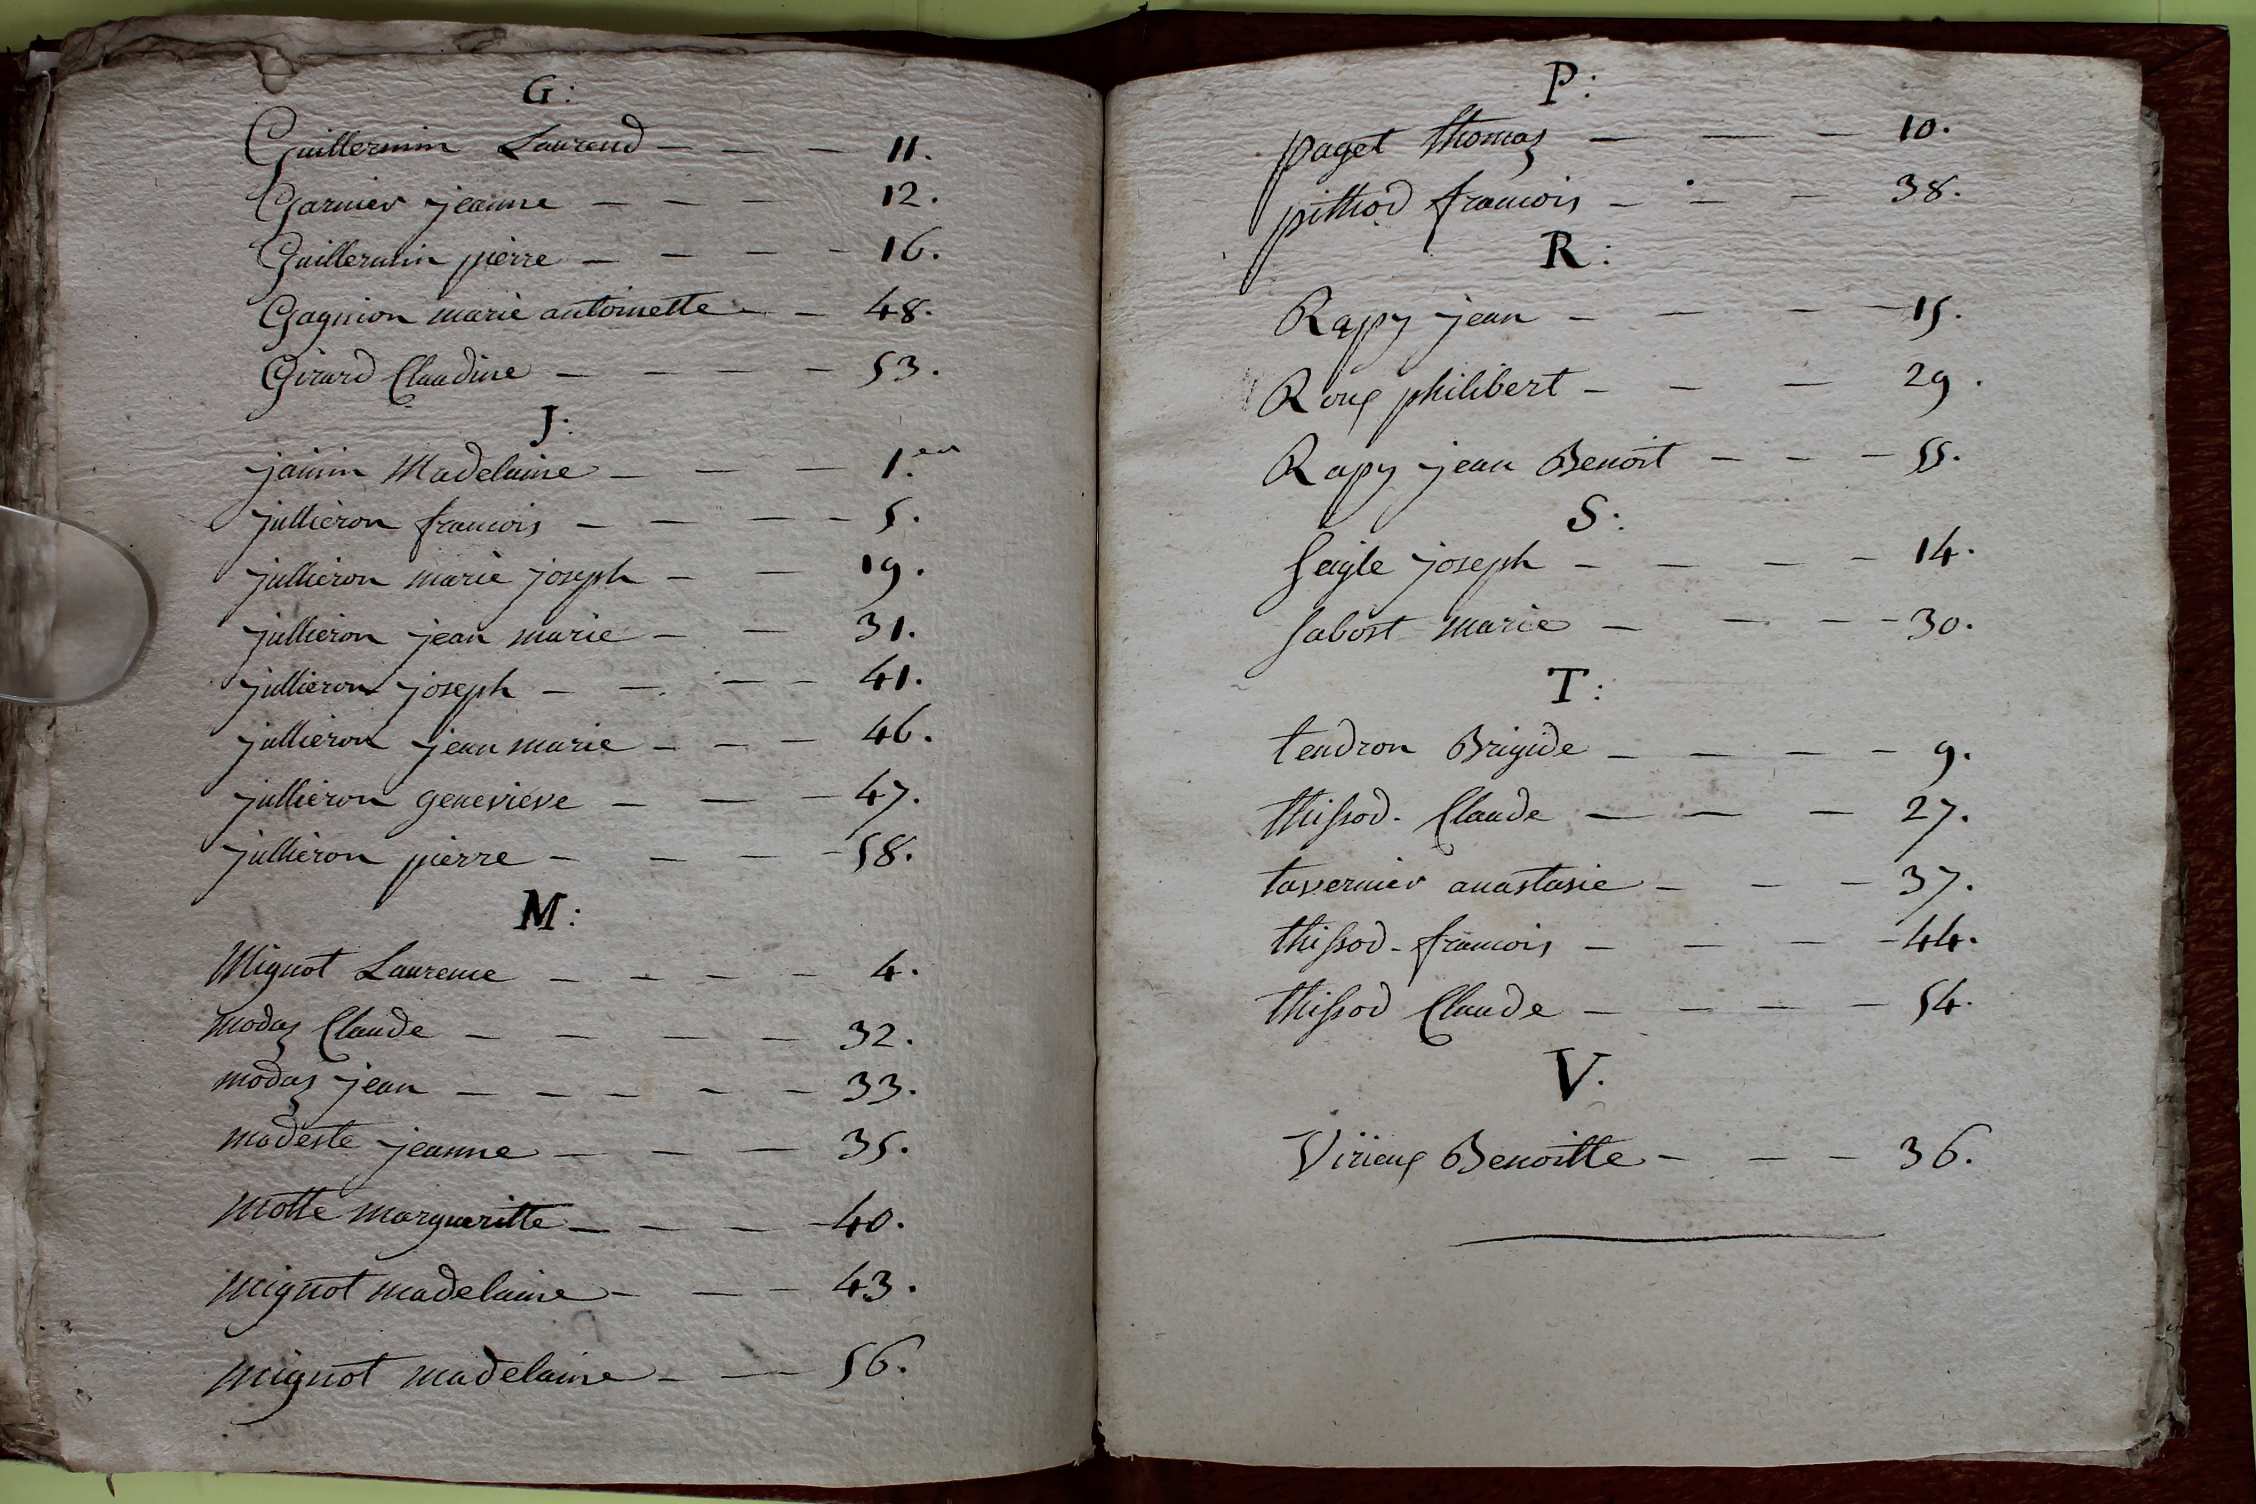 G:
Guillermin Laurend - - - 11.
Garnier jeanne - - - 12.
Guillermin pierre - - - - 16.
Gagnion marie antoinette - - 48.
Girard Claudine - - - - 53.
J:
jamin Madelaine - - - 1.er
jullieron francois - - - - 5.
jullieron marie joseph - - 19.
jullieron jean marie - - 31.
jullieron joseph - - - - 41.
jullieron jean marie - - - 46.
jullieron genevieve - - - 47.
jullieron pierre - - - - 58.
M:
Mignot Laurence - - - - 4.
modas Claude - - - - 32.
modas jean - - - - - 33.
modeste jeanne - - - 35.
motte margueritte - - - - 40.
mignot madelaine - - - 43.
mignot madelaine - - - 56.
P:
paget thomas - - - 10.
pithiod francois - - - 38.
R:
Rapy jean - - - - 15.
Roux philibert - - - 29.
Rapy jean Benoit - - - 55.
S:
Seigle joseph - - - - 14.
Sabost marie - - - - 30.
T:
tendron Brigide - - - - 9.
thissod. Claude - - - 27.
tavernier anastasie - - - 37.
thissod - francois - - - - 44.
thissod Claude - - - - 54.
V.
Virieux Benoitte - - - 36.